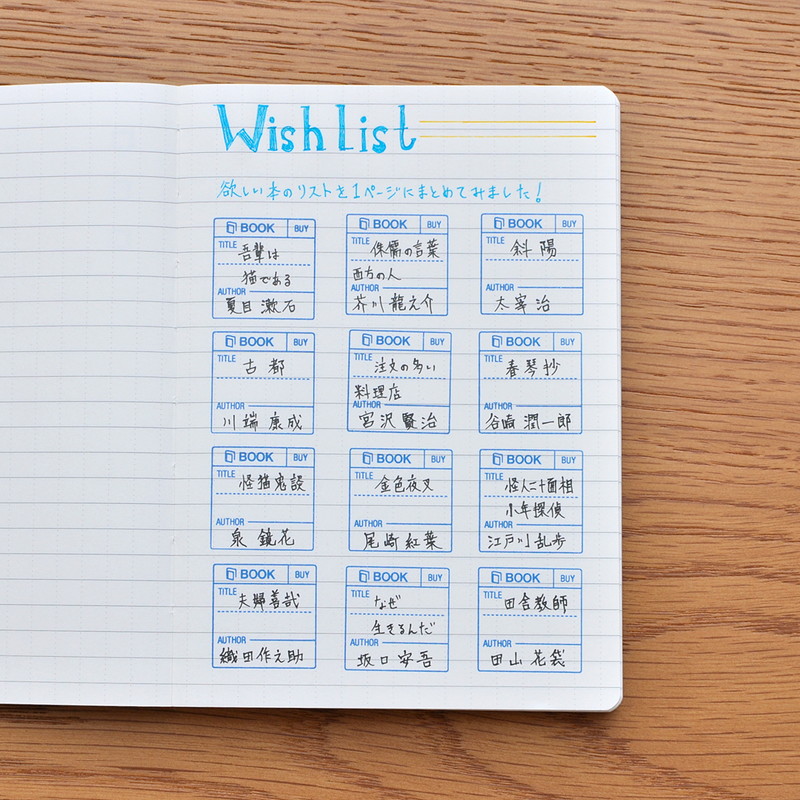 Wish list
欲しい本のリストを1ページにまとめてみました!
BOOK BUY
TITLE 吾輩は
猫である
AUTHOR
夏目漱石
BOOK BUY
TITLE 侏儒の言葉
西方の人
AUTHOR
芥川龍之介
BOOK BUY
TITLE 斜陽
AUTHOR
太宰治
BOOK BUY
TITLE 古都
AUTHOR
川端康成
BOOK BUY
TITLE 注文の多い
料理店
AUTHOR
宮沢賢治
BOOK BUY
TITLE 春琴抄
AUTHOR
谷崎潤一郎
BOOK BUY
TITLE 怪猫鬼談
AUTHOR
泉鏡花
BOOK BUY
TITLE 金色夜叉
AUTHOR
尾崎紅葉
BOOK BUY
TITLE 怪人二十面相
少年探偵
AUTHOR
江戸川乱歩
BOOK BUY
TITLE 夫婦善哉
AUTHOR
織田作之助
BOOK BUY
TITLE なぜ
生きるんだ
AUTHOR
坂口安吾
BOOK BUY
TITLE 田舎教師
AUTHOR
田山花袋